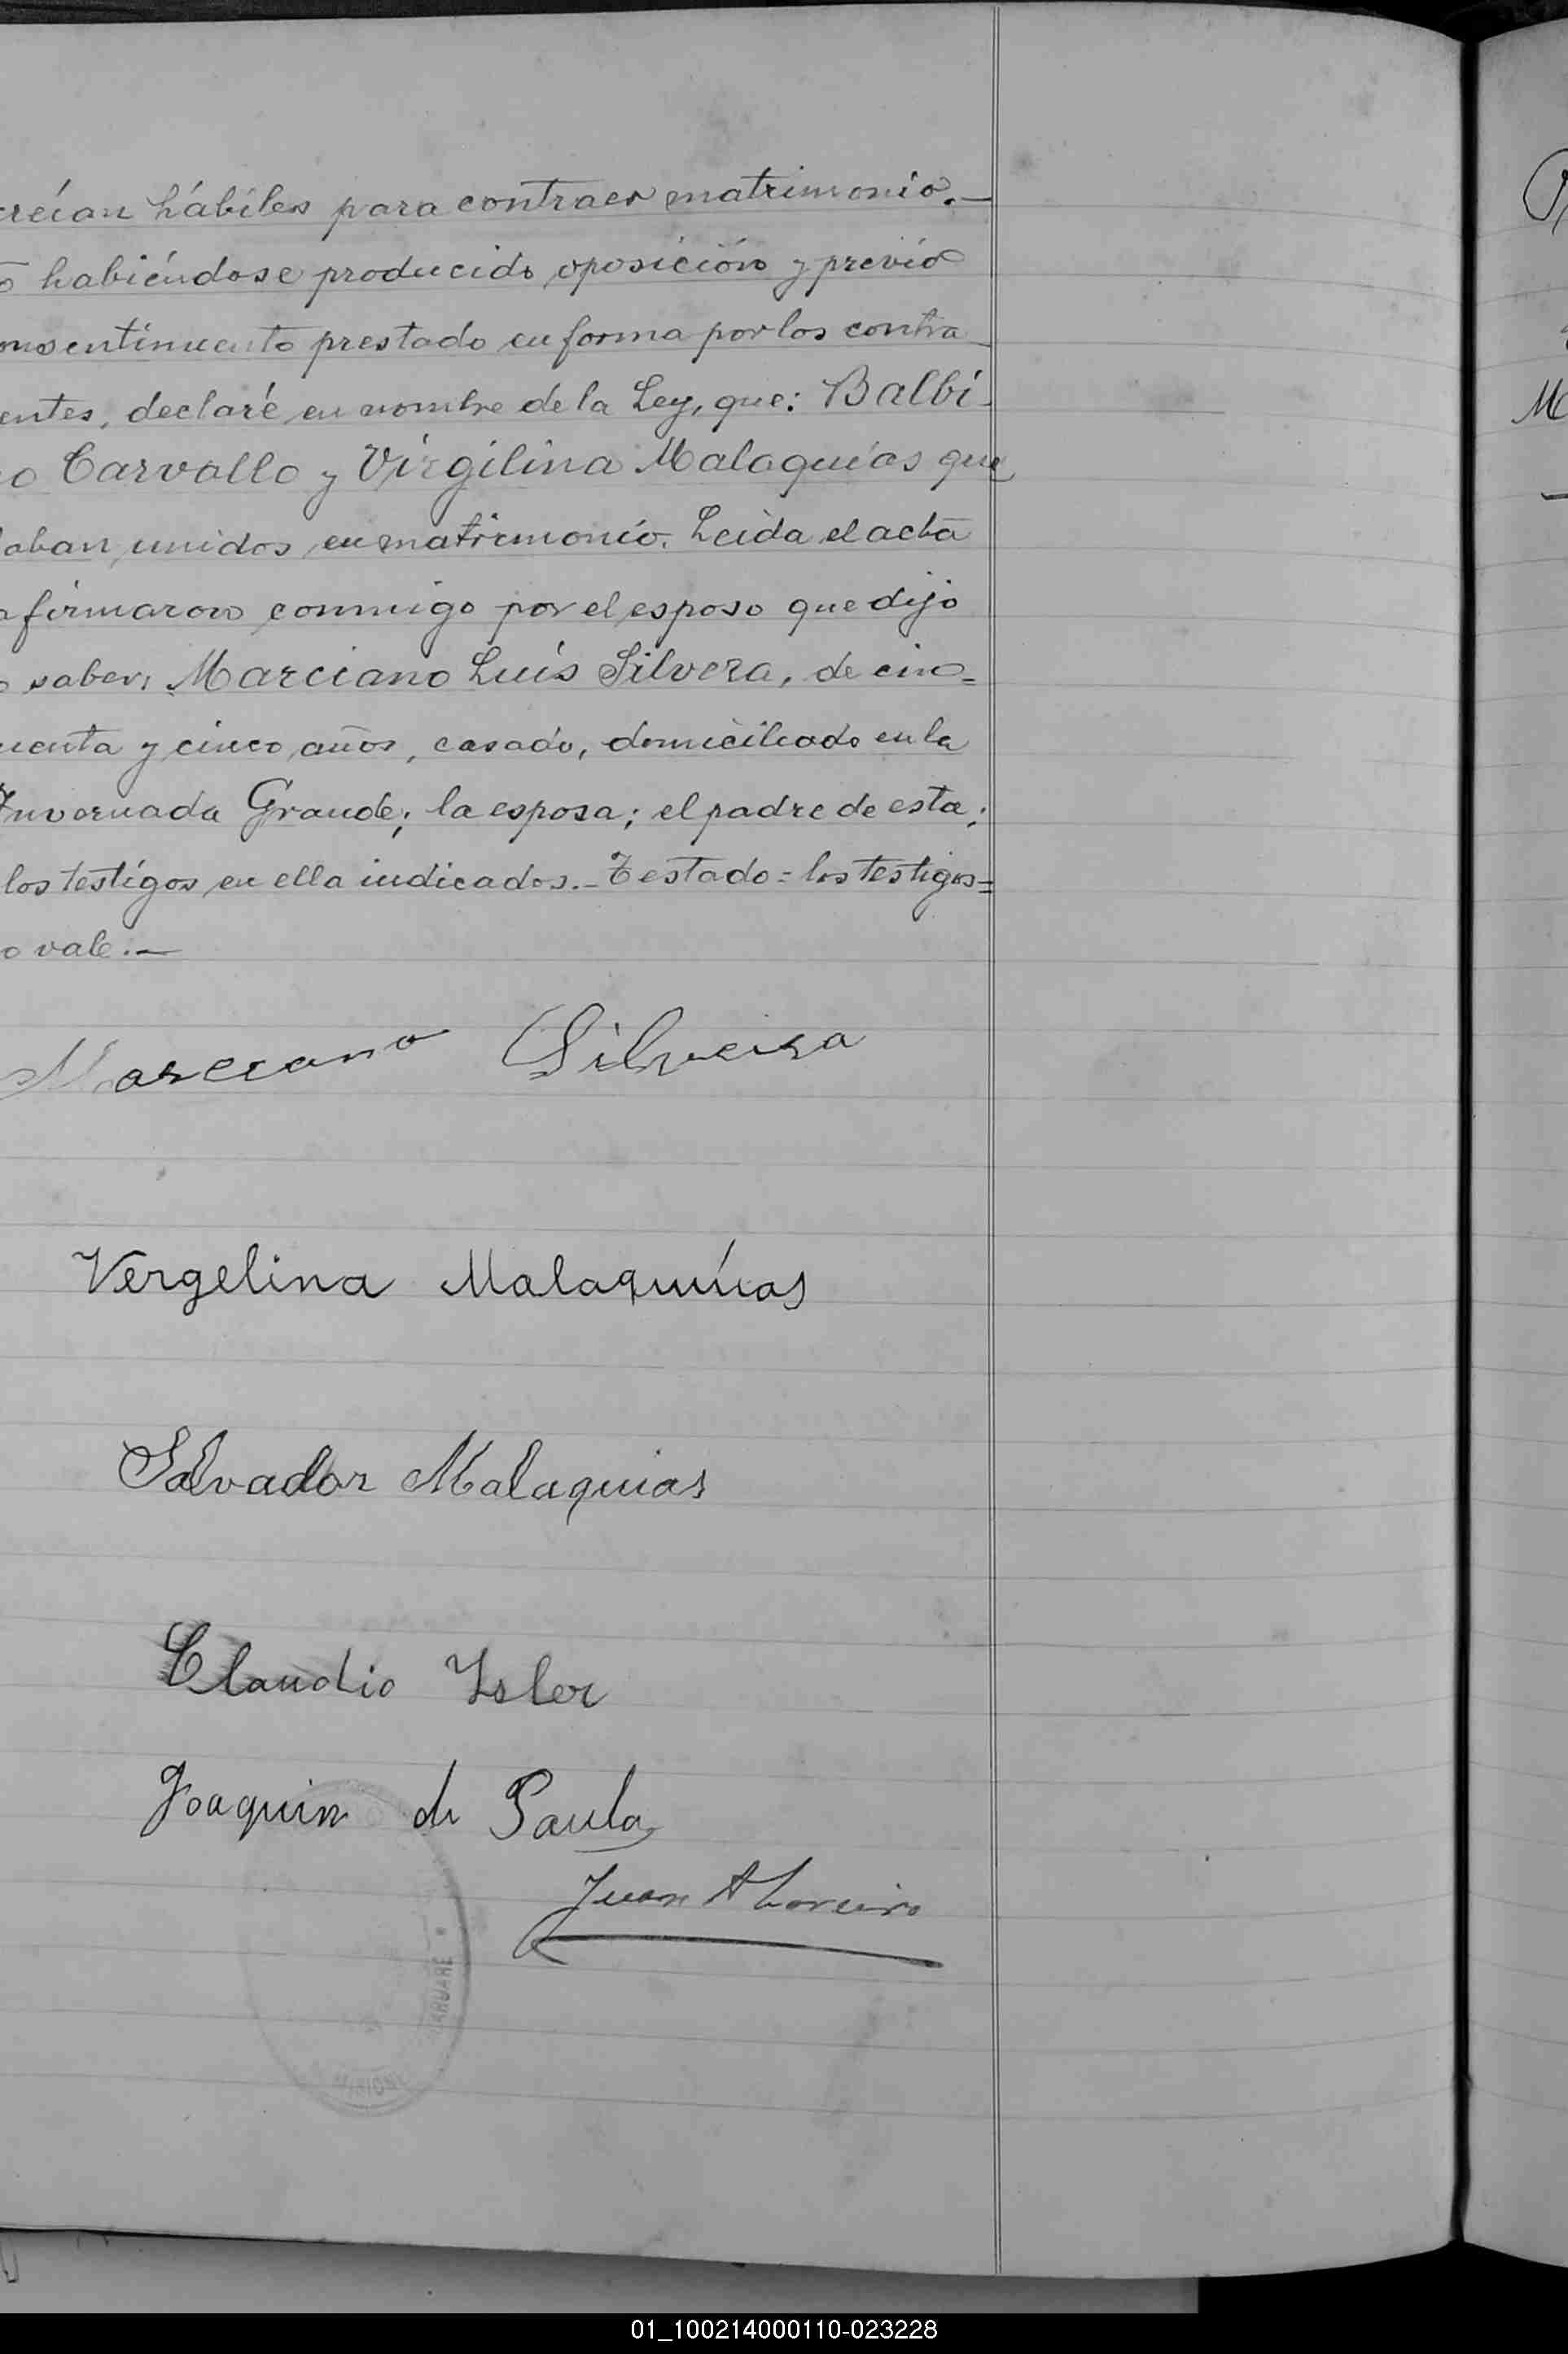 creían hábiles para contraer matrimonio.—
o habiéndose producido oposición y previo
onsentimiento prestado en forma por los contra
entes, declaré en nombre de la Ley, que: Balbi-
no Carvallo y Virgilina Malaquias que
daban unidos en matrimonio. Leida el acta
a firmaron conmigo por el esposo que dijo
o saber: Marciano Luis Silvera, de cin=
cuenta y cinco años, casado, domiciliado en la
Invernada Grande; la esposa; el padre de esta;
los testigos en ella indicados.- Testado = los testigos=
o vale.—
Marciano Silveira
Vergelina Malaquías
Salvador Malaquias
Claudio Isler
Joaquin de Paula
Juan A Loreiro
MISION
01_100214000110-023228